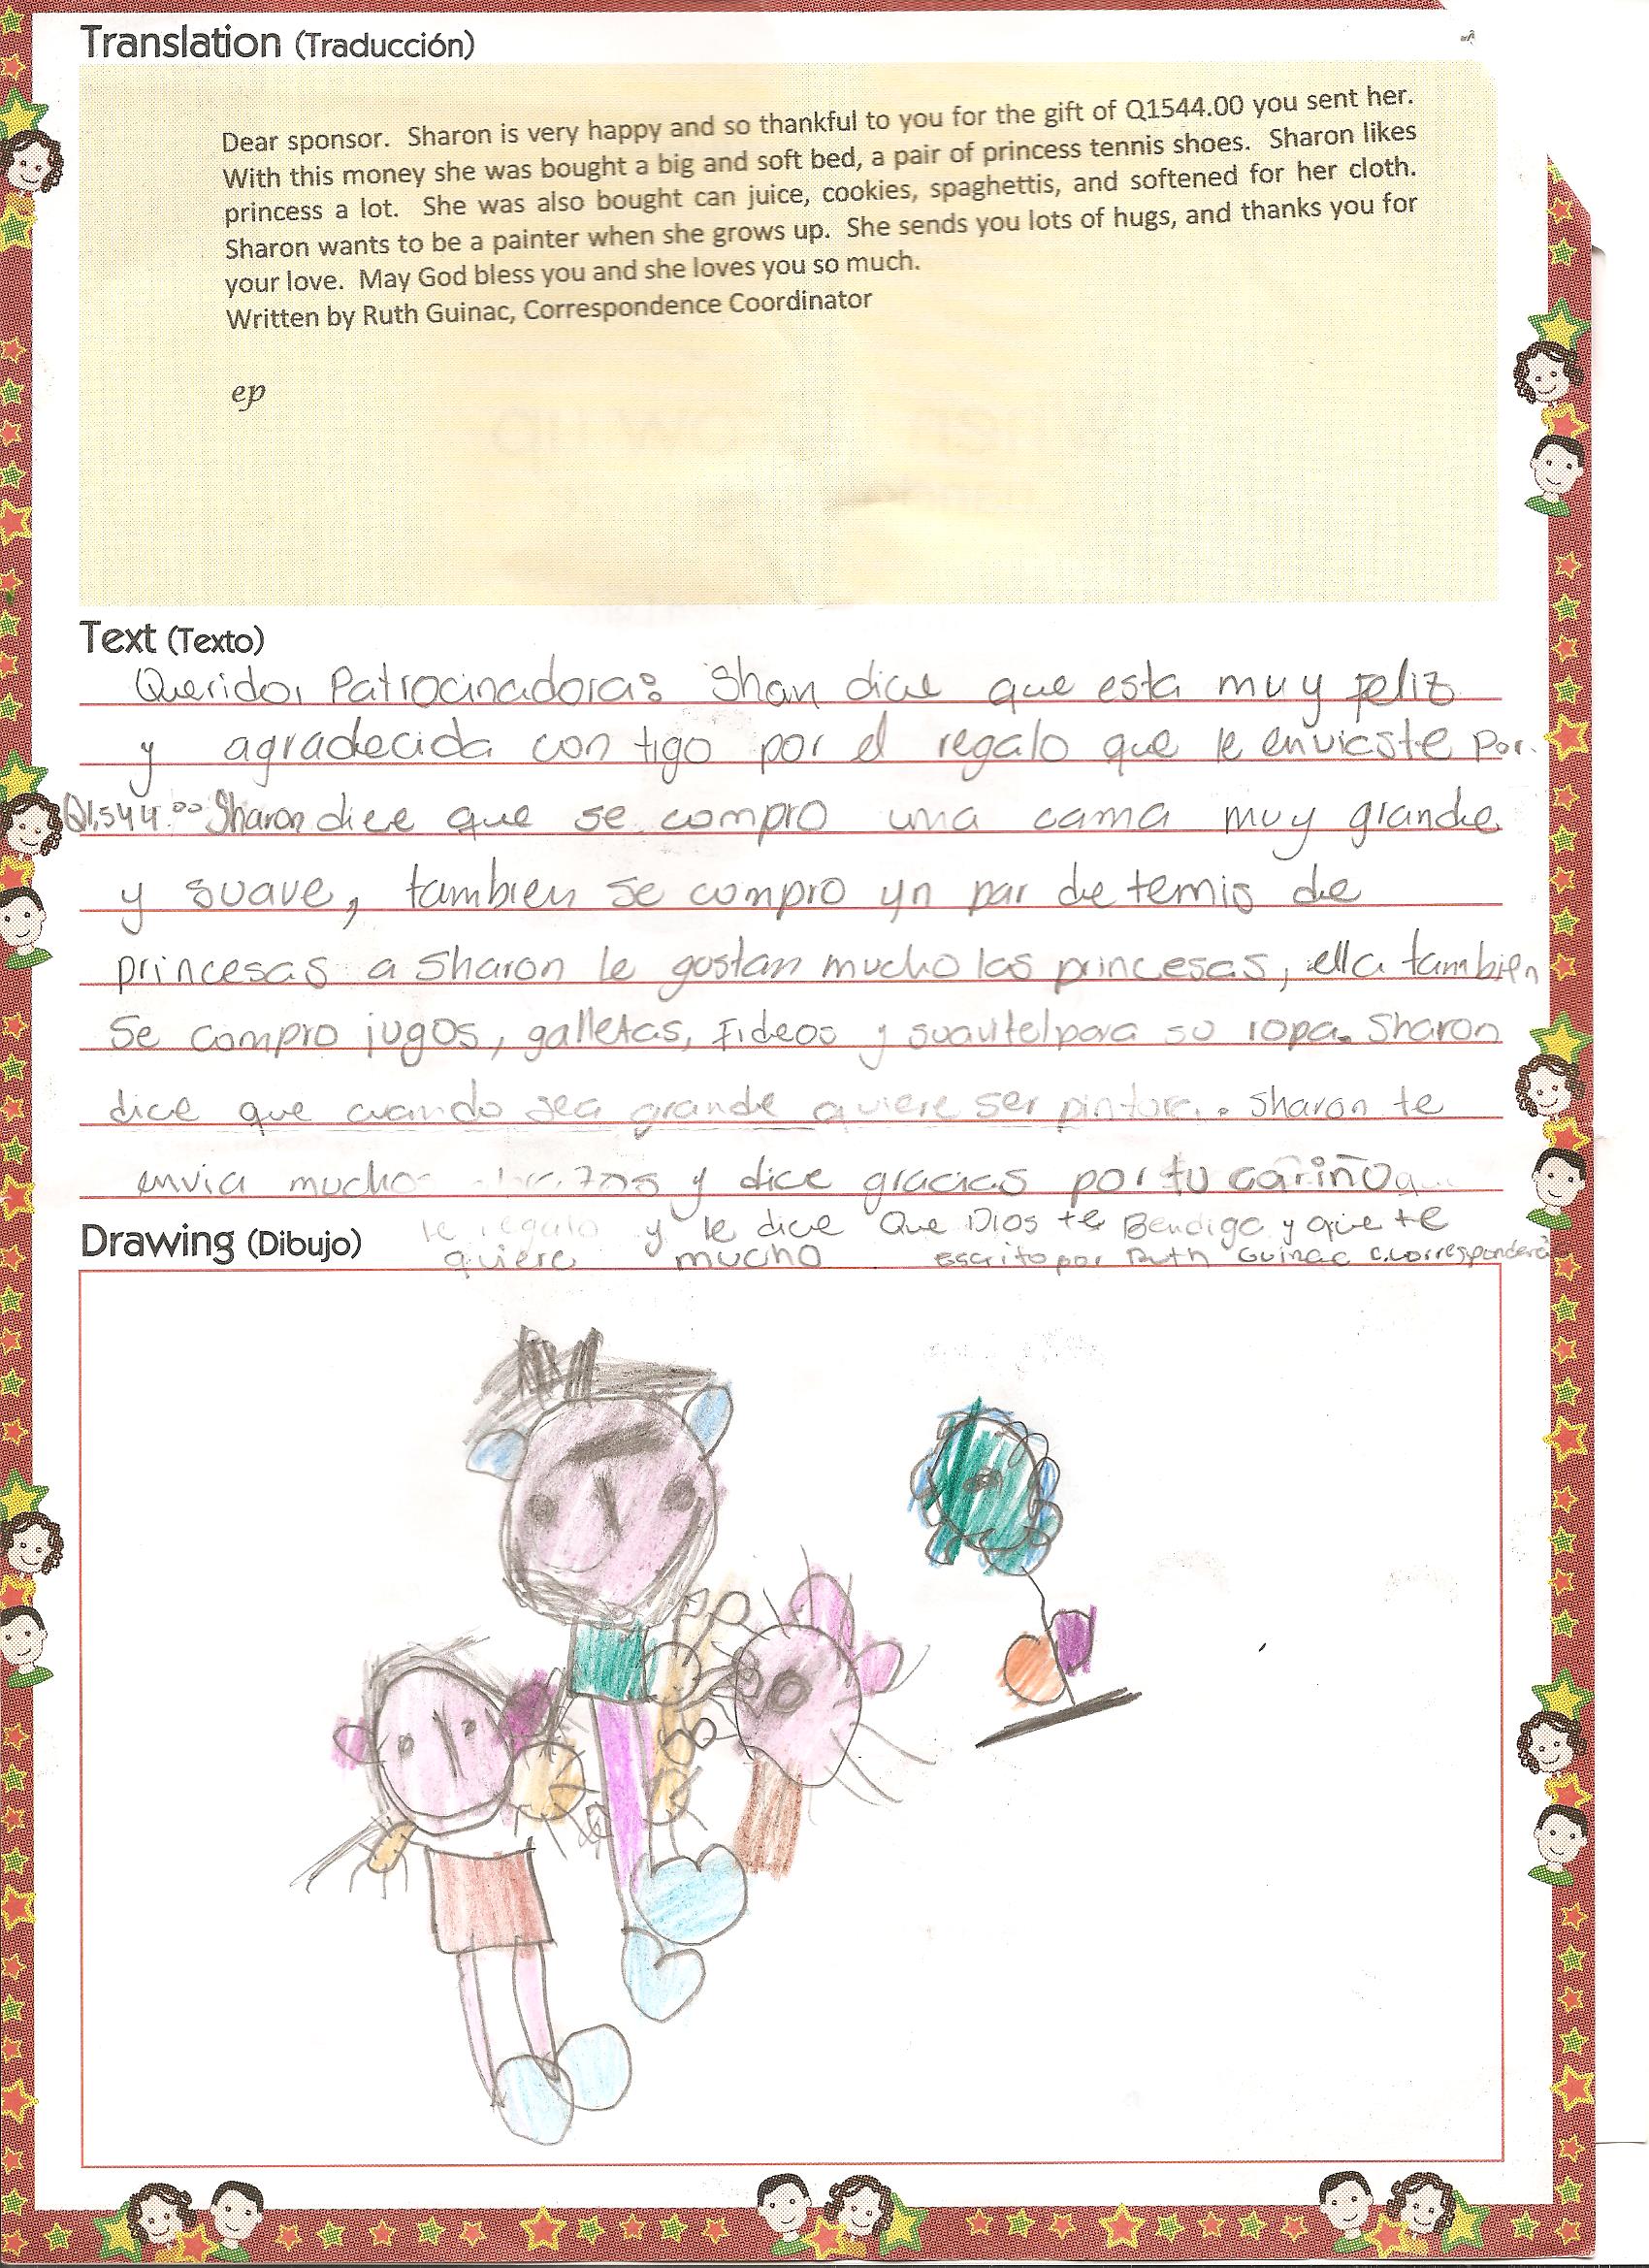 Translation (Traducción)
Dear sponsor. Sharon is very happy and so thankful to you for the gift of Q1544.00 you sent her.
With this money she was bought a big and soft bed, a pair of princess tennis shoes. Sharon likes
princess a lot. She was also bought can juice, cookies, spaghettis, and softened for her cloth.
Sharon wants to be a painter when she grows up. She sends you lots of hugs, and thanks you for
your love. May God bless you and she loves you so much.
Written by Ruth Guinac, Correspondence Coordinator
ep
Text (Texto)
Querida Patrocinadora: Shan dice que esta muy feliz
y agradecida con tigo por el regalo que le enviaste por
Q1,544.00 Sharon dice que se compro una cama muy grande
y suave, tambien se compro un par de temis de
princesas a Sharon le gustan mucho las princesas, ella tambien
Se compro jugos, galletas, Fideos y suavitel para su ropa. Sharon
dice que cuando sea grande quiere ser pintora. Sharon te
envia muchos abrazos y dice gracias por tu cariño
le regalo y le dice Que Dios te Bendiga y que te
Drawing (Dibujo)
quiere mucho Escrito por Ruth Guinac